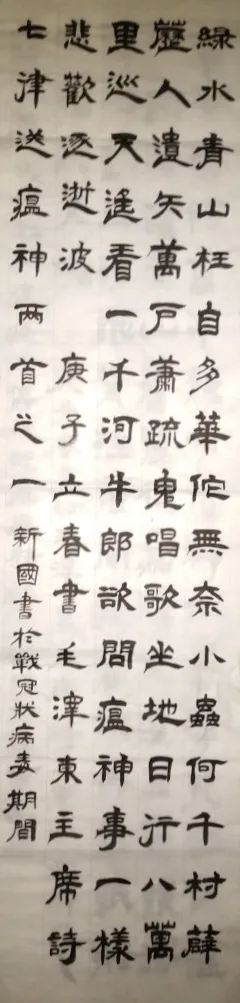 綠水青山枉自多華佗無奈小蟲何千村薜
藶人遺矢萬戶蕭疏鬼唱歌坐地日行八萬
里巡天遙看一千河牛郎欲問瘟神事一樣
悲歡逐逝波 庚子立春書毛澤東主席詩
七律送瘟神两首之一 新國書於戰冠狀病毒期間